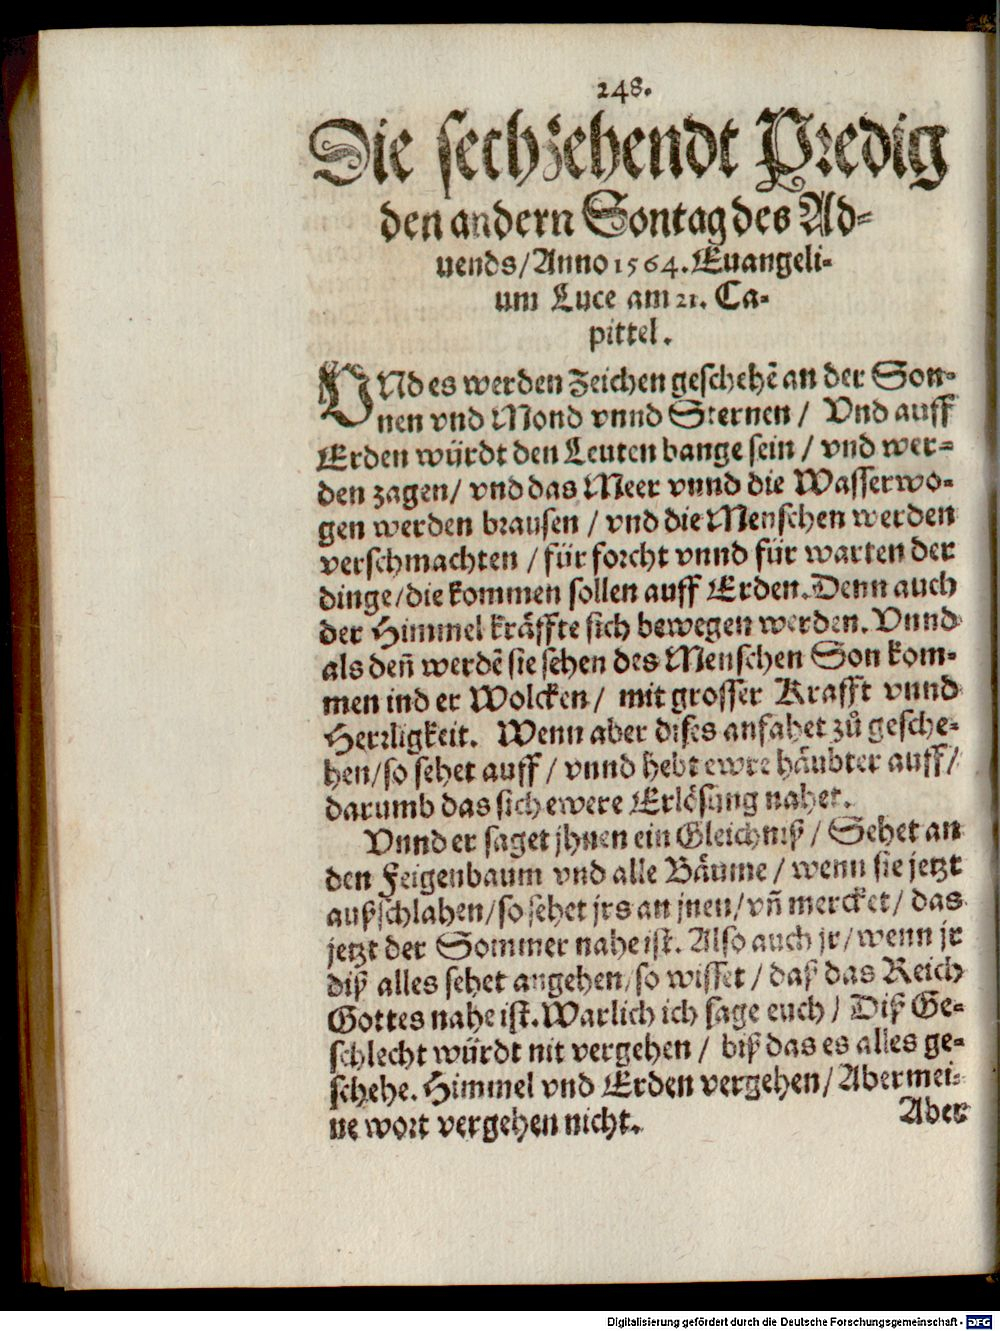 248.
Die sechzehendt Predig
den andern Sontag des Ad-
uends/Anno 1564. Euangeli-
um Luce am 21. Ca-
pittel.
VNd es werden Zeichen geschehẽ an der Son-
nen vnd Mond vnnd Sternen / Vnd auff
Erden würdt den Leuten bange sein / vnd wer-
den zagen/ vnd das Meer vnnd die Wasserwo-
gen werden brausen / vnd die Menschen werden
verschmachten / für forcht vnnd für warten der
dinge/die kommen sollen auff Erden. Denn auch
der Himmel kräffte sich bewegen werden. Vnnd
als deñ werdẽ sie sehen des Menschen Son kom-
men ind er Wolcken/ mit grosser Krafft vnnd
Herrligkeit. Wenn aber dises anfahet zů gesche-
hen/so sehet auff / vnnd hebt ewre häubter auff/
darumb das sich ewere Erlösung nahet.
Vnnd er saget jhnen ein Gleichniß / Sehet an
den Feigenbaum vnd alle Bäume / wenn sie jetzt
außschlahen/so sehet jrs an jnen/vñ mercket/ das
jetzt der Sommer nahe ist. Also auch jr/wenn jr
diß alles sehet angehen/so wisset / daß das Reich
Gottes nahe ist. Warlich ich sage euch / Diß Ge-
schlecht würdt nit vergehen / biß das es alles ge-
schehe. Himmel vnd Erden vergehen/ Aber mei-
ne wort vergehen nicht.
Aber
Digitalisierung gefördert durch die Deutsche Forschungsgemeinschaft - DFG